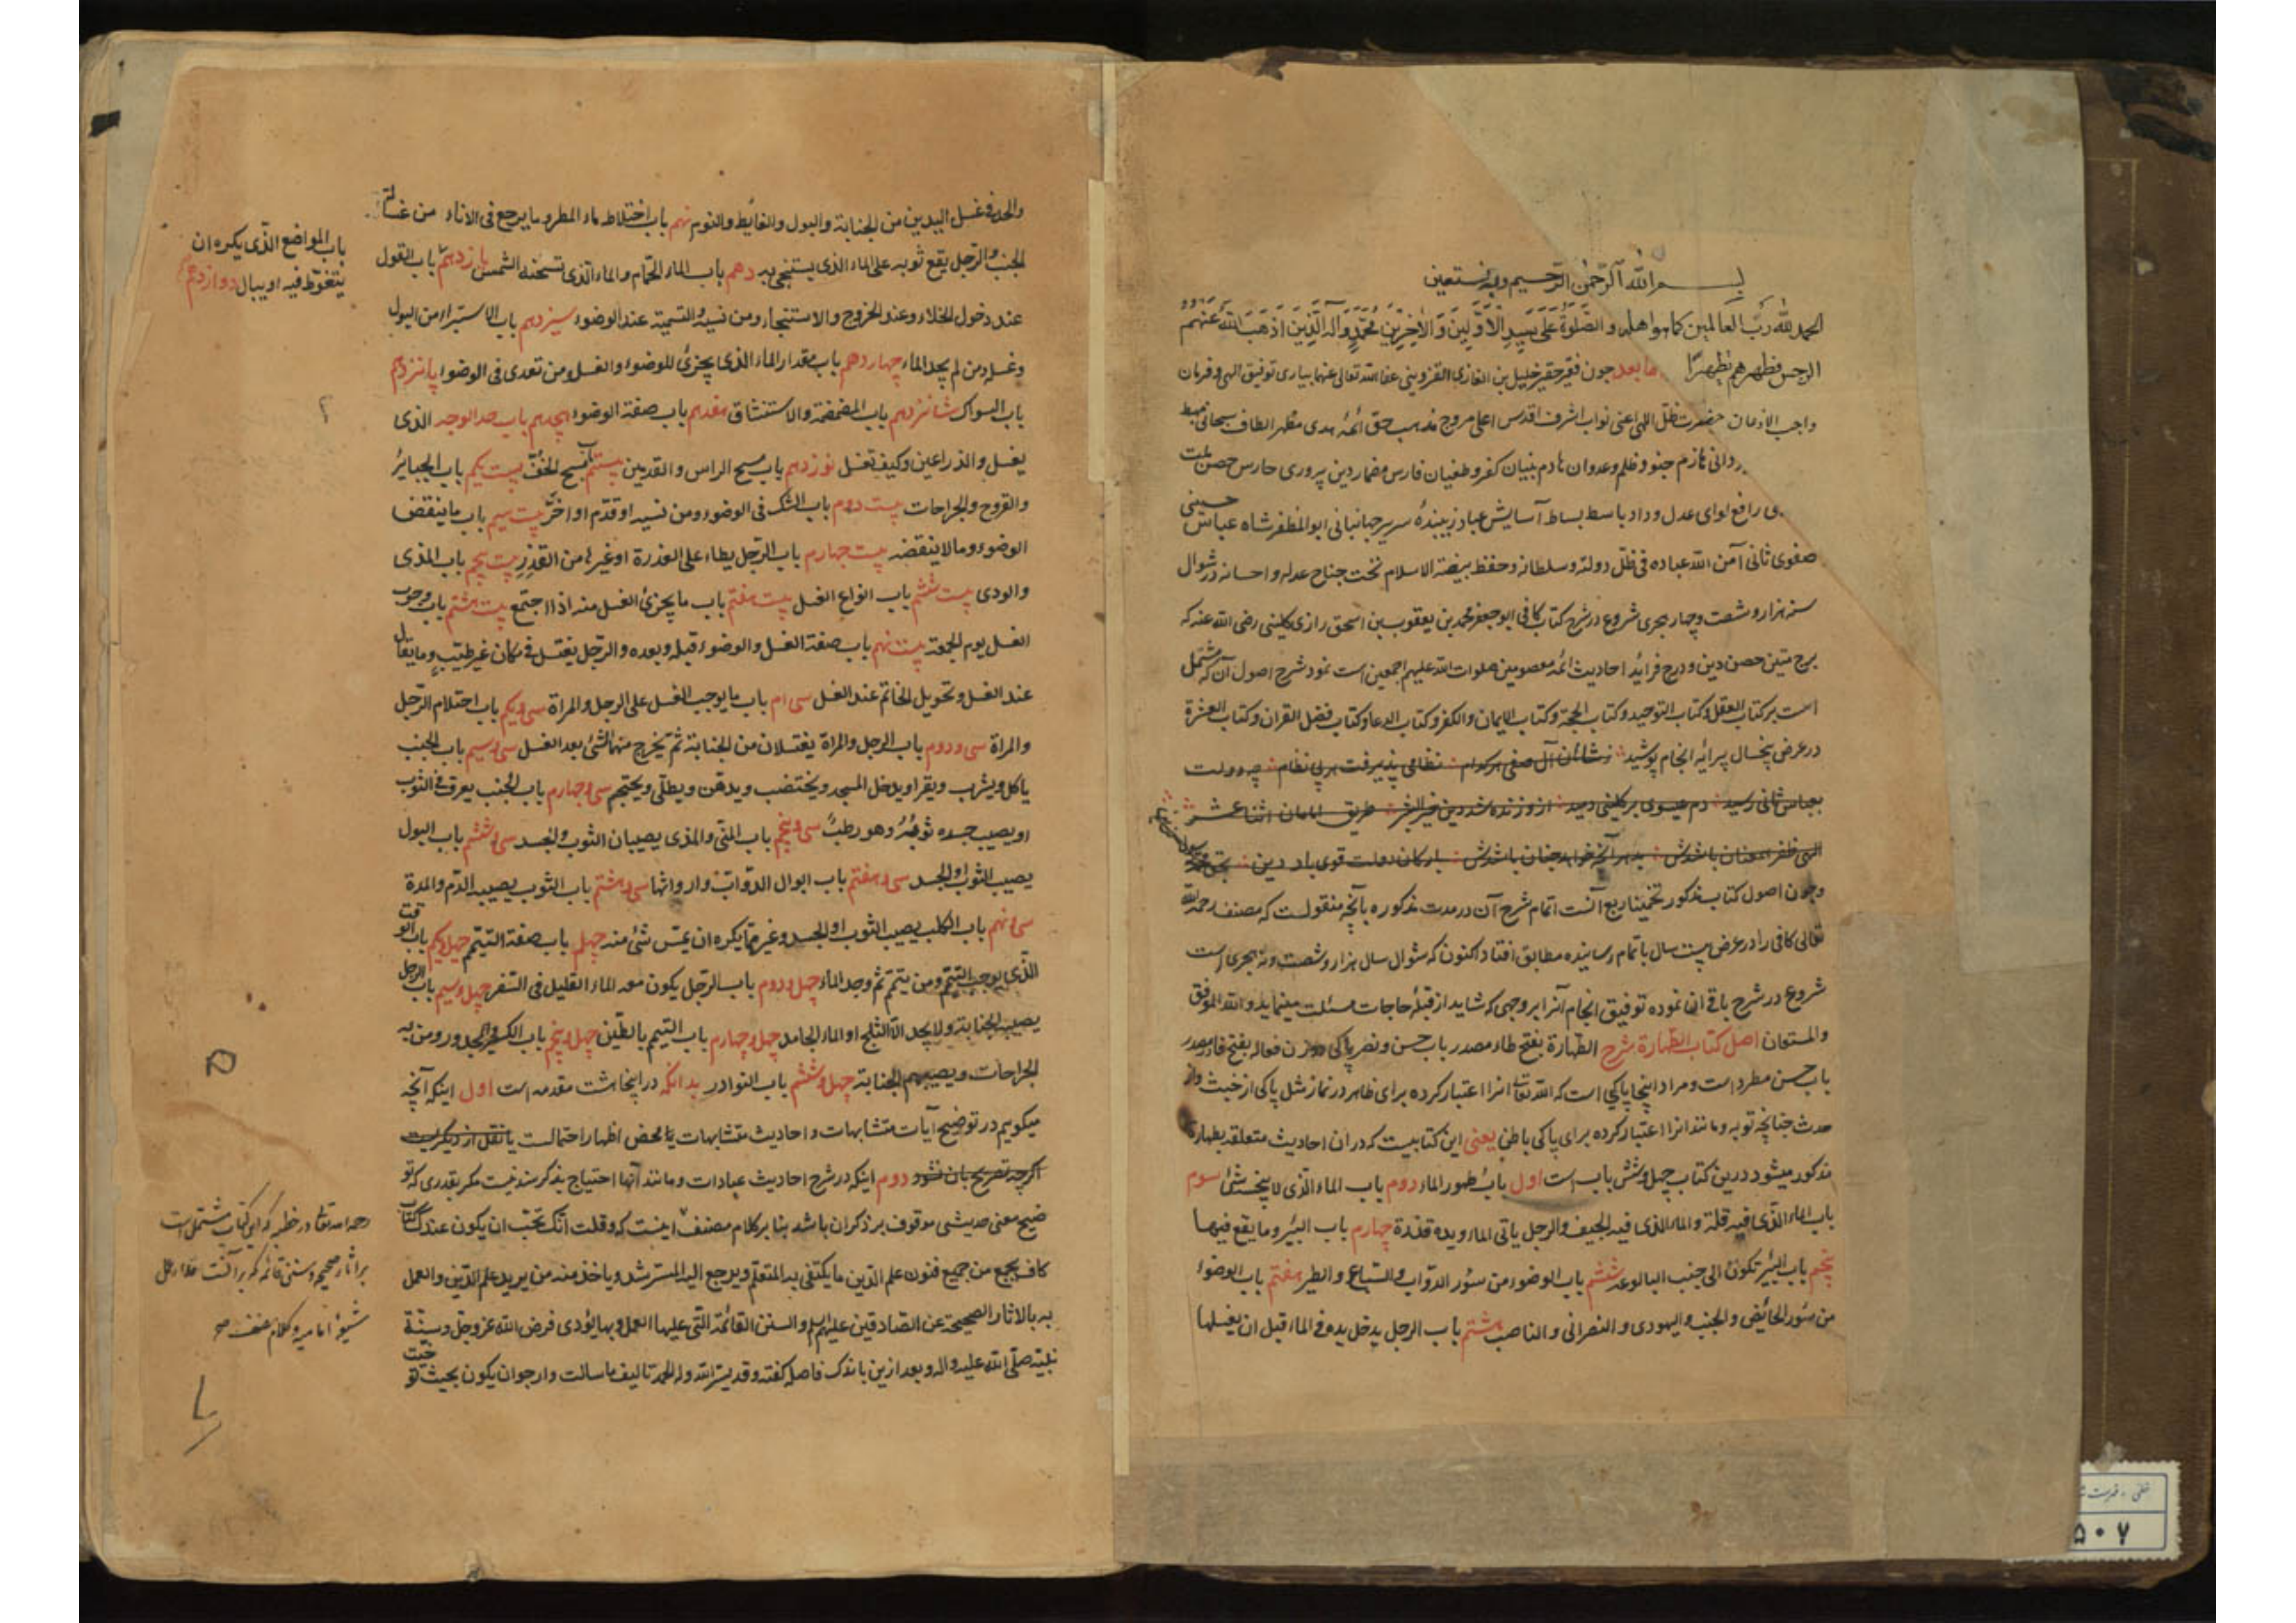 بسم الله الرحمن الرحیم وبه نستعین
الحمد لله رب العالمین کما هو اهله والصلوة علی سید الاولین والاخرین محمد وآله الذین اذهب الله عنهم
الرجس فطهرهم تطهیرا اما بعد چون فقیر حقیر خلیل بن الغازی القزوینی عفا الله تعالی عنهما بیاری توفیق الهی و فرمان
واجب الاذعان حضرت ظل اللهی اعنی نواب اشرف اقدس اعلی مروج مذهب حق ائمه هدی مظهر الطاف سبحانی مهبط
هازم جنود ظلم وعدوان هادم بنیان کفر و طغیان فارس مضمار دین پروری حارس حصن ملت
رافع لوای عدل و داد باسط بساط آسایش عباد زیبنده سریر جهانبانی ابو المظفر شاه عباس حسینی
صفوی ثانی آمن الله عباده فی ظل دولته وسلطانه وحفظ بیضة الاسلام تحت جناح عدله واحسانه در شوال
سنه هزار و شصت و چهار هجری شروع در شرح کتاب کافی ابو جعفر محمد بن یعقوب بن اسحق رازی کلینی رضی الله عنه که
برج متین حصن دین و درج فراید احادیث ائمه معصومین صلوات الله علیهم اجمعین است نمود شرح اصول آن که مشتمل
است بر کتاب العقل و کتاب التوحید و کتاب الحجة و کتاب الایمان والکفر و کتاب الدعا و کتاب فضل القران و کتاب العشرة
در عرض پنج سال پیرایه انجام پوشید ز شاهان آل صفی هر کدام نظامی پذیرفت هر بی نظام چو دولت
بعباس ثانی رسید دم عیسوی بر کلینی دمید ازو زنده شد دین خیر البشر طریق امامان اثنا عشر
الهی ظفر همعنان باشدش بد هر آنچه خواهد چنان باشدش بارکان دولت قوی باد دین بحق محمد
وچون اصول کتاب مذکور تخمینا ربع آنست اتمام شرح آن در مدت مذکوره بآنچه منقولست که مصنف رحمه الله
تعالی کافی را در عرض بیست سال باتمام رسانیده مطابق افتاد اکنون که شوال سال هزار و شصت و نه هجری است
شروع در شرح باقی آن نموده توفیق انجام آنرا بر وجهی که شاید از قبله حاجات مسئلت مینماید والله الموفق
والمستعان اصل کتاب الطهارة شرح الطهارة بفتح طاء مصدر باب حسن و نصر پاکی و وزن فعاله بفتح فا در مصدر
باب حسن مطرد است و مراد اینجا پاکی است که الله تعالی انرا اعتبار کرده برای ظاهر در نماز مثل پاکی از خبث و از
حدث چنانچه توبه و مانند انرا اعتبار کرده برای پاکی باطن یعنی این کتابیست که در ان احادیث متعلقه بطهارة
مذکور میشود درین کتاب چهل و شش باب است اول باب طهور الماء دوم باب الماء الذی لا ینجسه شئ سوم
باب الماء الذی فیه قلة والماء الذی فیه الجیف والرجل یاتی الماء ویده قذرة چهارم باب البئر وما یقع فیها
پنجم باب البئر تکون الی جنب البالوعه ششم باب الوضوء من سؤر الدواب والسباع والطیر هفتم باب الوضوء
من سؤر الحائض والجنب والیهودی والنصرانی والناصب هشتم باب الرجل یدخل یده فی الماء قبل ان یغسلها
والحد فی غسل الیدین من الجنابة والبول والغایط والنوم نهم باب اختلاط ماء المطر وما یرجع فی الاناء من غسالة
الجنب والرجل یقع ثوبه علی الماء الذی یستنجی به دهم باب الماء الحمام والماء الذی تسخنه الشمس یازدهم باب القول
باب المواضع الذی یکره ان
یتغوط فیه او یبال دوازدهم
عند دخول الخلاء وعند الخروج والاستنجاء ومن نسیه والتسمیة عند الوضوء سیزدهم باب الاستبراء من البول
وغسله ومن لم یجد الماء چهاردهم باب مقدار الماء الذی یجزئ للوضوء والغسل ومن تعدی فی الوضوء پانزدهم
باب السواک شانزدهم باب المضمضة والاستنشاق هفدهم باب صفة الوضوء هجدهم باب حد الوجه الذی
یغسل والذراعین وکیف تغسل نوزدهم باب مسح الراس والقدمین بیستم باب مسح الخف بیست یکم باب الجبایر
والقروح والجراحات بیست دوم باب الشک فی الوضوء ومن نسیه او قدم او اخر بیست سیم باب ما ینقض
الوضوء وما لا ینقضه بیست چهارم باب الرجل یطاء علی العذرة او غیرها من القذر بیست پنجم باب المذی
والودی بیست ششم باب انواع الغسل بیست هفتم باب ما یجزئ الغسل منه اذا اجتمع بیست هشتم باب وجوب
الغسل یوم الجمعة بیست نهم باب صفة الغسل والوضوء قبله وبعده والرجل یغتسل فی مکان غیر طیب وما یقال
عند الغسل وتحویل الخاتم عند الغسل سی ام باب ما یوجب الغسل علی الرجل والمراة سی ویکم باب احتلام الرجل
والمراة سی و دوم باب الرجل والمراة یغتسلان من الجنابة ثم یخرج منهما الشئ بعد الغسل سی وسیم باب الجنب
یاکل ویشرب ویقرا ویدخل المسجد ویختضب ویدهن ویطلی ویحتجم سی و چهارم باب الجنب یعرق فی الثوب
او یصیب جسده ثوبه وهو رطب سی و پنجم باب المنی والمذی یصیبان الثوب والجسد سی و ششم باب البول
یصیب الثوب او الجسد سی و هفتم باب ابوال الدواب وارواثها سی و هشتم باب الثوب یصیبه الدم والمدة
سی و نهم باب الکلب یصیب الثوب او الجسد وغیره مما یکره ان یمس شئ منه چهل باب صفة التیمم چهل ویکم باب الوقت
الذی یوجب التیمم ومن تیمم ثم وجد الماء چهل و دوم باب الرجل یکون معه الماء القلیل فی السفر چهل وسیم باب الرجل
یصیبه الجنابة ولا یجد الا الثلج او الماء الجامد چهل و چهارم باب التیمم بالطین چهل و پنجم باب الکسیر والمجدور ومن به
الجراحات ویصیبهم الجنابة چهل و ششم باب النوادر بدانکه در اینجا هشت مقدمه است اول اینکه آنچه
میکوییم در توضیح آیات متشابهات و احادیث متشابهات یا محض اظهار احتمالست یا نقل از دیکریست
اکرچه تصریح بان نشود دوم اینکه در شرح احادیث عبادات و مانند آنها احتیاج بذکر سند نیست مکر بقدری که تو
ضیح معنی حدیثی موقوف بر ذکر ان باشد بنا بر کلام مصنف اینست که وقلت انک تحب ان یکون عندک کتاب
کاف یجمع من جمیع فنون علم الدین ما یکتفی به المتعلم ویرجع الیه المسترشد ویاخذ منه من یرید علم الدین والعمل
به بالاثار الصحیحة عن الصادقین علیهم السلم والسنن القائمة التی علیها العمل وبها یؤدی فرض الله عز وجل وسنة
نبیه صلی الله علیه واله وبعد ازین باندک فاصله کفته وقد یسر الله وله الحمد تالیف ما سالت وارجو ان یکون بحیث توخیت
رحمه الله تعالی در خطبه که این کتاب مشتمل است
بر آثار صحیحه وسنن قائمه که بر آنست مدار عمل
شیعه امامیه وکلام مصنف
۵۰۷